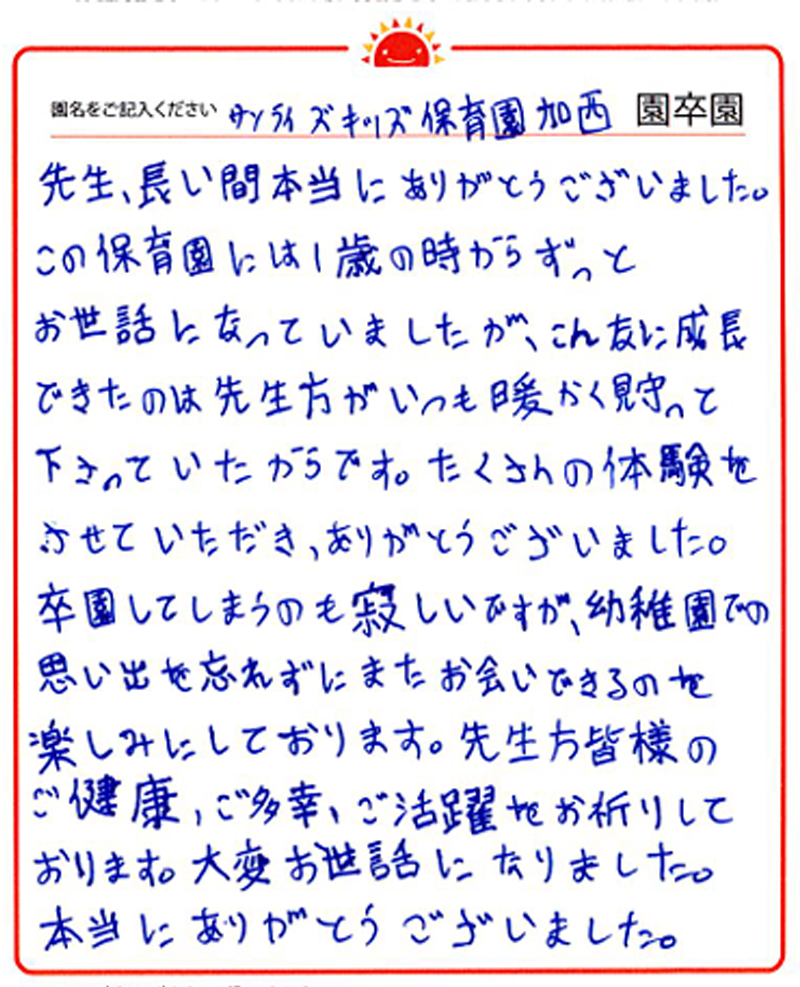 園名をご記入ください サンライズキッズ保育園加西 園卒園
先生、長い間本当にありがとうございました。
この保育園には1歳の時からずっと
お世話になっていましたが、こん友に成長
できたのは先生方がいつも暖かく見守って
下さっていたからです。たくさんの体験を
させていただき、ありがとうございました。
卒園してしまうのも寂しいですが、幼稚園での
思い出を忘れずにまたお会いできるのを
楽しみにしております。先生方皆様の
ご健康、ご多幸、ご活躍をお祈りして
おります。大変お世話になりました。
本当にありがとうございました。